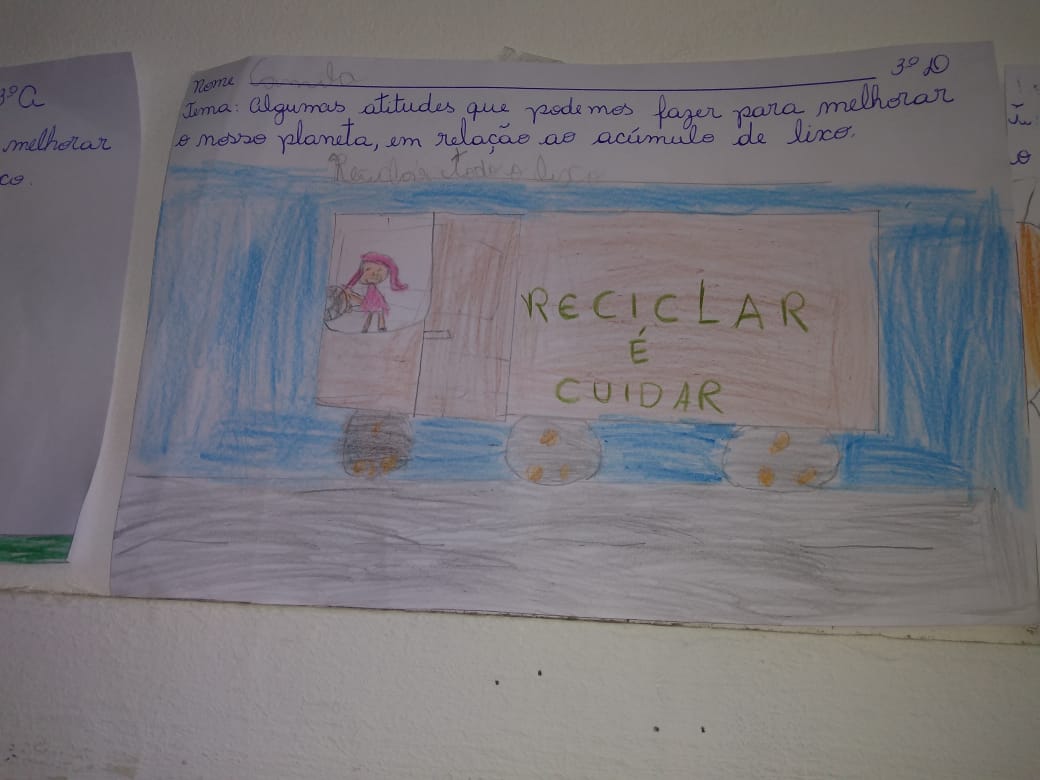 3º A
melhorar
co.
Nome Camila 3º D
Tema: Algumas atitudes que podemos fazer para melhorar
o nosso planeta, em relação ao acúmulo de lixo.
Reciclar todo o lixo
RECICLAR
É
CUIDAR
o